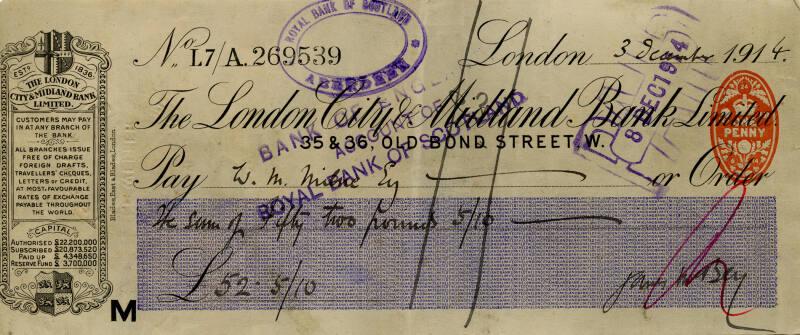 ESTD 1836.
THE LONDON
CITY & MIDLAND BANK
LIMITED.
CUSTOMERS MAY PAY
IN AT ANY BRANCH OF
THE BANK.
ALL BRANCHES ISSUE
FREE OF CHARGE
FOREIGN DRAFTS,
TRAVELLERS' CHEQUES,
LETTERS OF CREDIT,
AT MOST FAVOURABLE
RATES OF EXCHANGE
PAYABLE THROUGHOUT
THE WORLD.
CAPITAL
AUTHORISED £22,200,000
SUBSCRIBED £20,873,520
PAID UP £ 4,348,650
RESERVE FUND £ 3,700,000
Blades, East & Blades, London.
No. L7/A. 269539
ROYAL BANK OF SCOTLAND
ABERDEEN
London 3 December 1914.
The London City & Midland Bank Limited.
35 & 36, OLD BOND STREET, W.
BANK OF ENGLAND
ACCOUNT OF
ROYAL BANK OF SCOTLAND
8 DEC 1914
PENNY
Pay W. M. Esq or Order
The sum of Fifty two pounds 5/10
£ 52 - 5/10
M